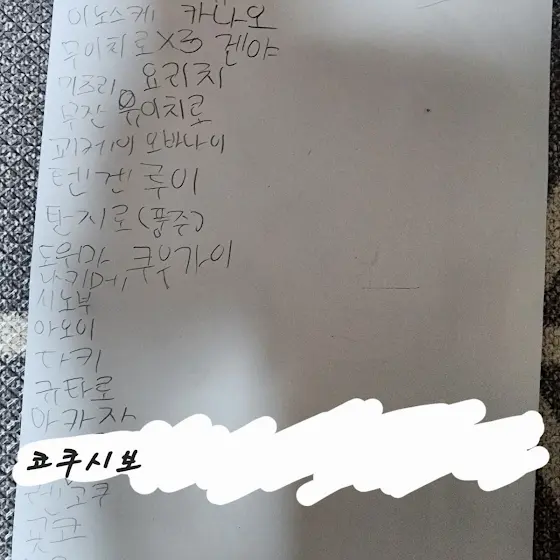 이노스케 카나오
무이치로X3 겐야
기츠리 요리치
무잔 유이치로
교메이 오바나이
텐겐 루이
탄지로(풍주)
도우마 쿠우가이
나키메
시노부
아오이
다키
규타로
아카자
코쿠시보
렌고쿠
굣코